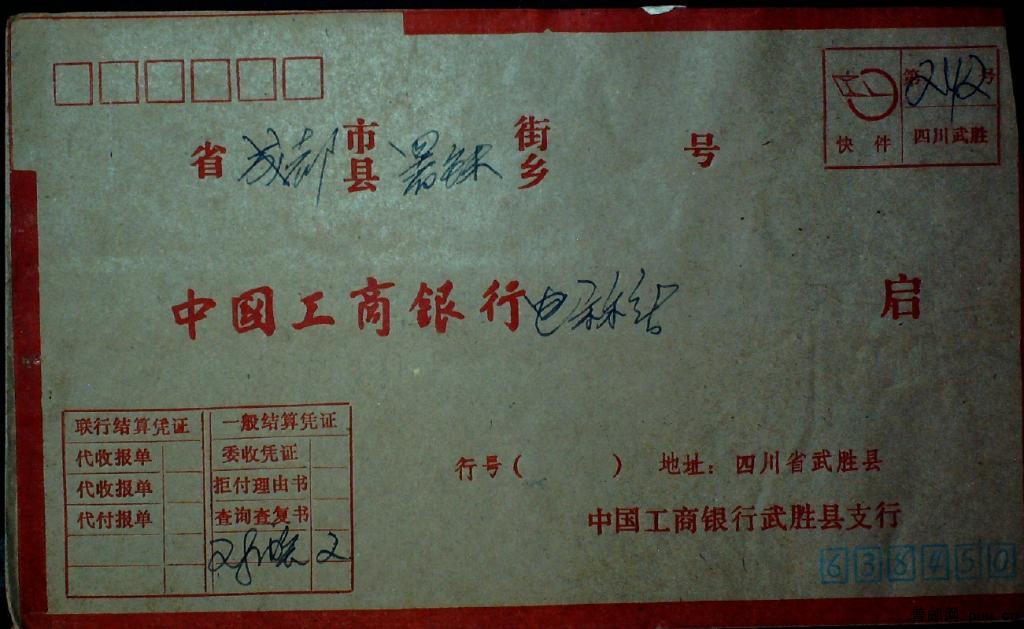 第242号
快件 四川武胜
省 成都 市县 暑袜 街乡 号
中国工商银行 启
联行结算凭证 一般结算凭证
代收报单 委收凭证
代收报单 拒付理由书
代付报单 查询查复书
2
行号( ) 地址: 四川省武胜县
中国工商银行武胜县支行
638450